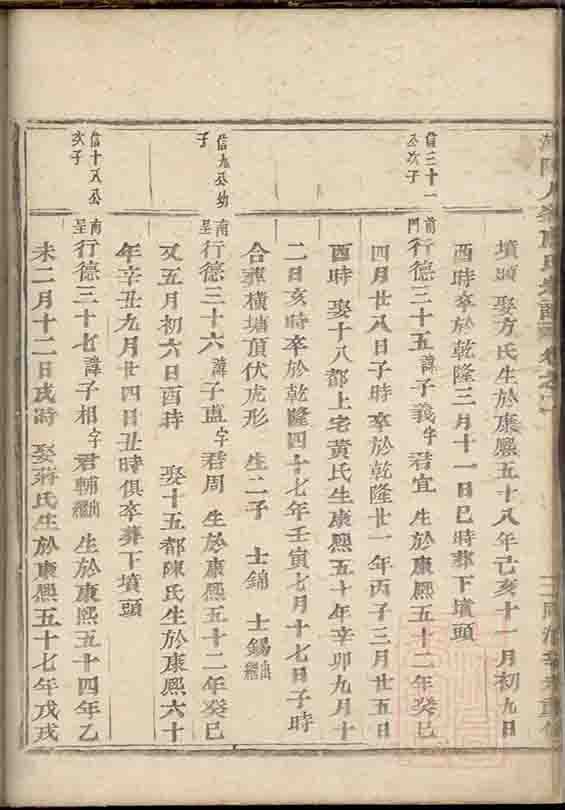 墳頭 娶方氏生於康熙五十八年己亥十一月初九日
酉時卒於乾隆三月十一日巳時葬下墳頭
信三十一公次子
前門 行德三十五諱子義字君宜 生於康熙五十二年癸巳
四月廿八日子時卒於乾隆廿一年丙子三月廿五日
酉時 娶十八都上宅黃氏生康熙五十年辛卯九月十
二日亥時卒於乾隆四十七年壬寅七月十七日子時
合葬橫塘頂伏虎形 生二子 士錦 士錫出繼
信九公幼子
南呈 行德三十六諱子直字君周 生於康熙五十二年癸巳
又五月初六日酉時 娶十五都陳氏生於康熙六十
年辛丑九月廿四日丑時俱卒葬下墳頭
信十八公次子
南呈 行德三十七諱子相字君輔出繼 生於康熙五十四年乙
未二月十二日戌時 娶蔣氏生於康熙五十七年戊戌